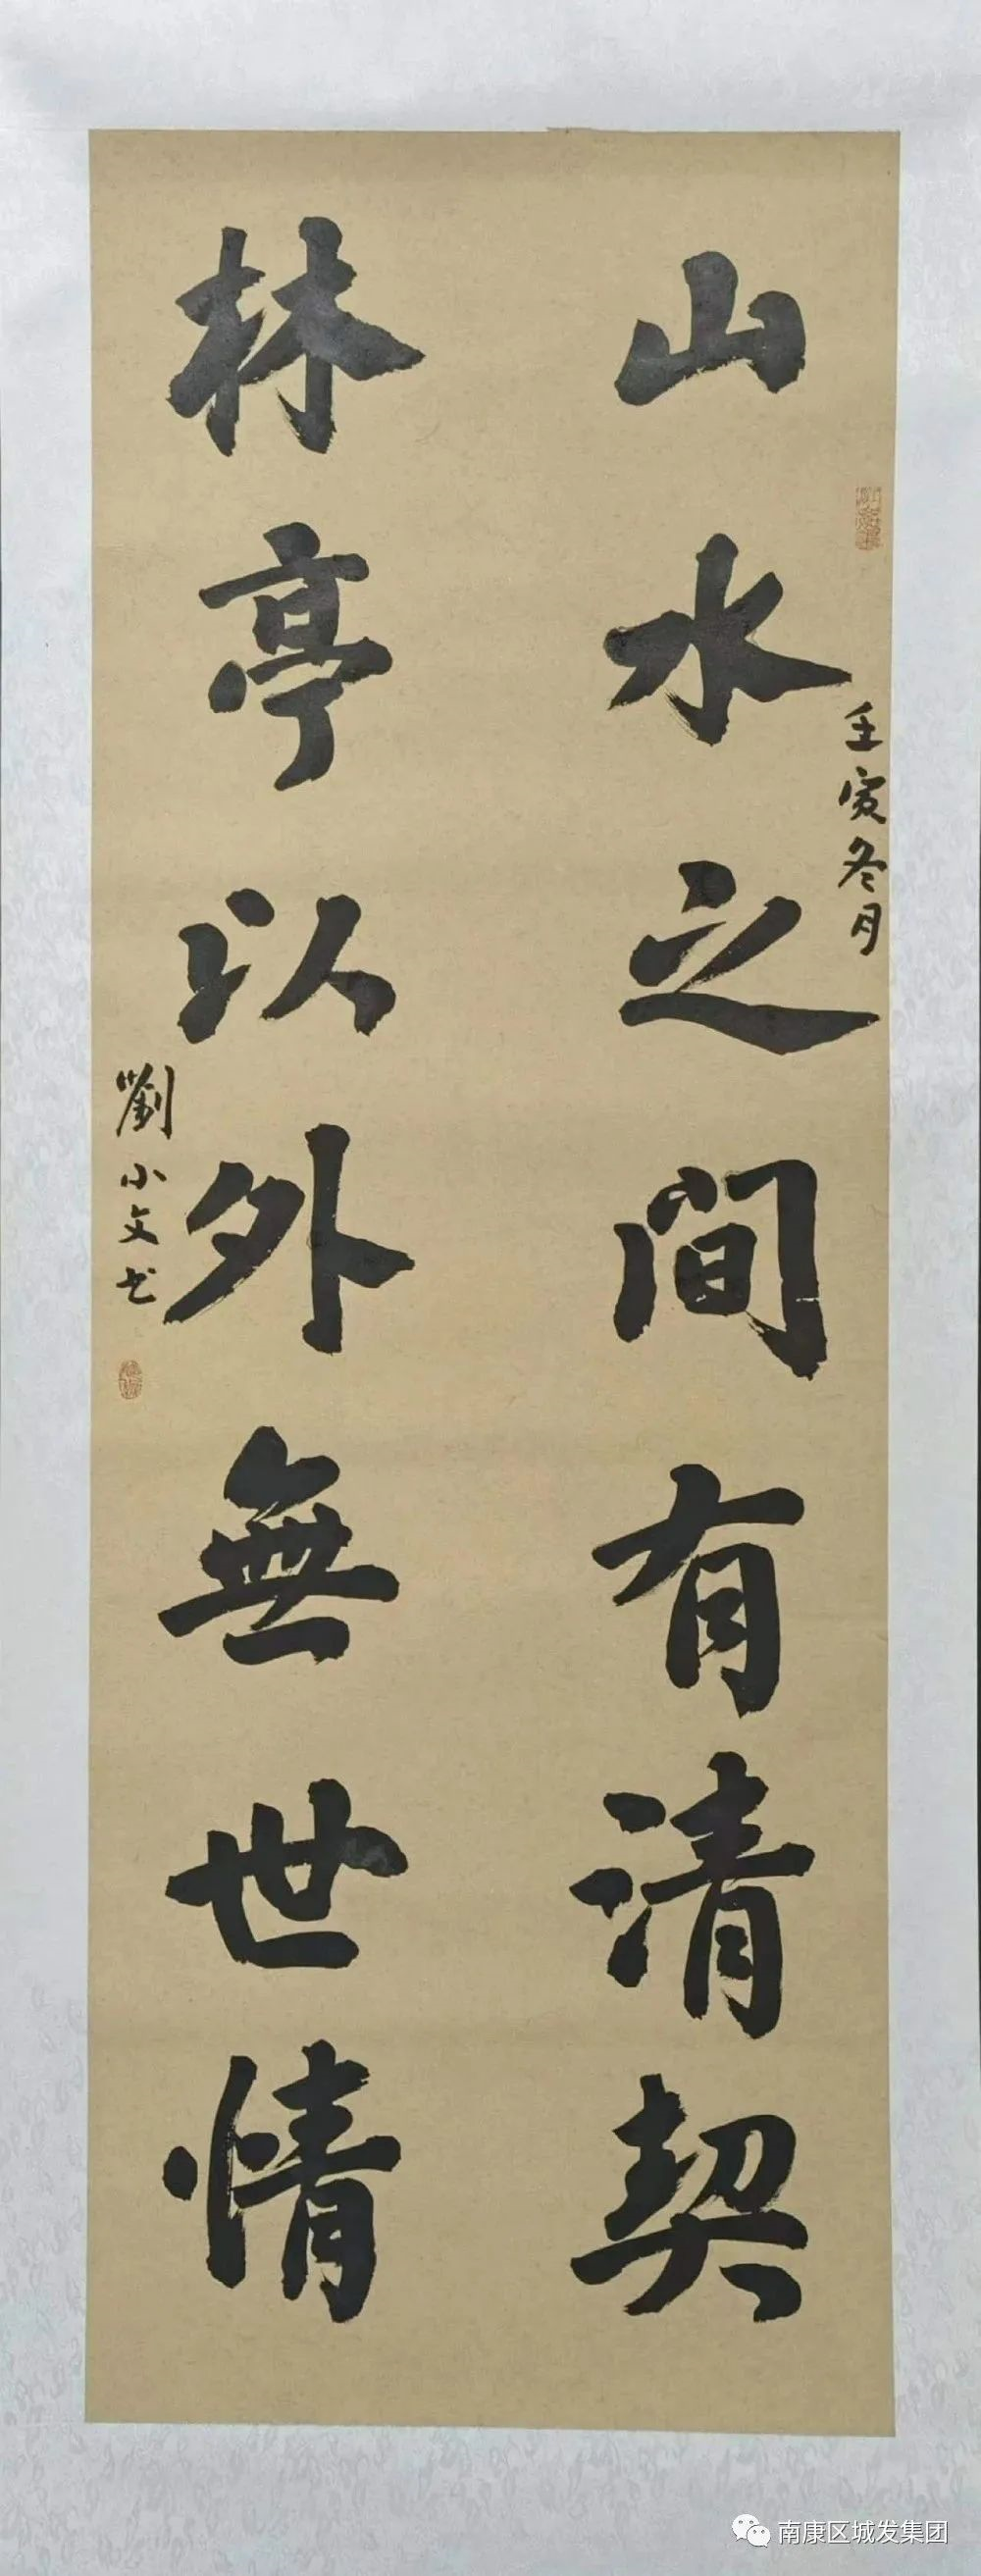 山水之间有清契
壬寅冬月
林亭以外無世情
劉小文书
南康区城发集团